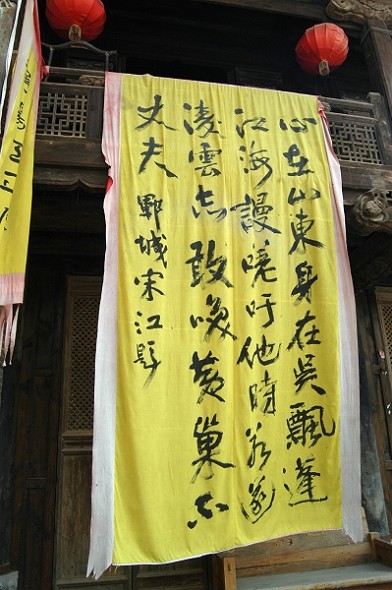 心在山東身在吳飄蓬
江海謾嗟吁他時若遂
凌雲志敢咲黃巢不
丈夫 鄆城宋江題